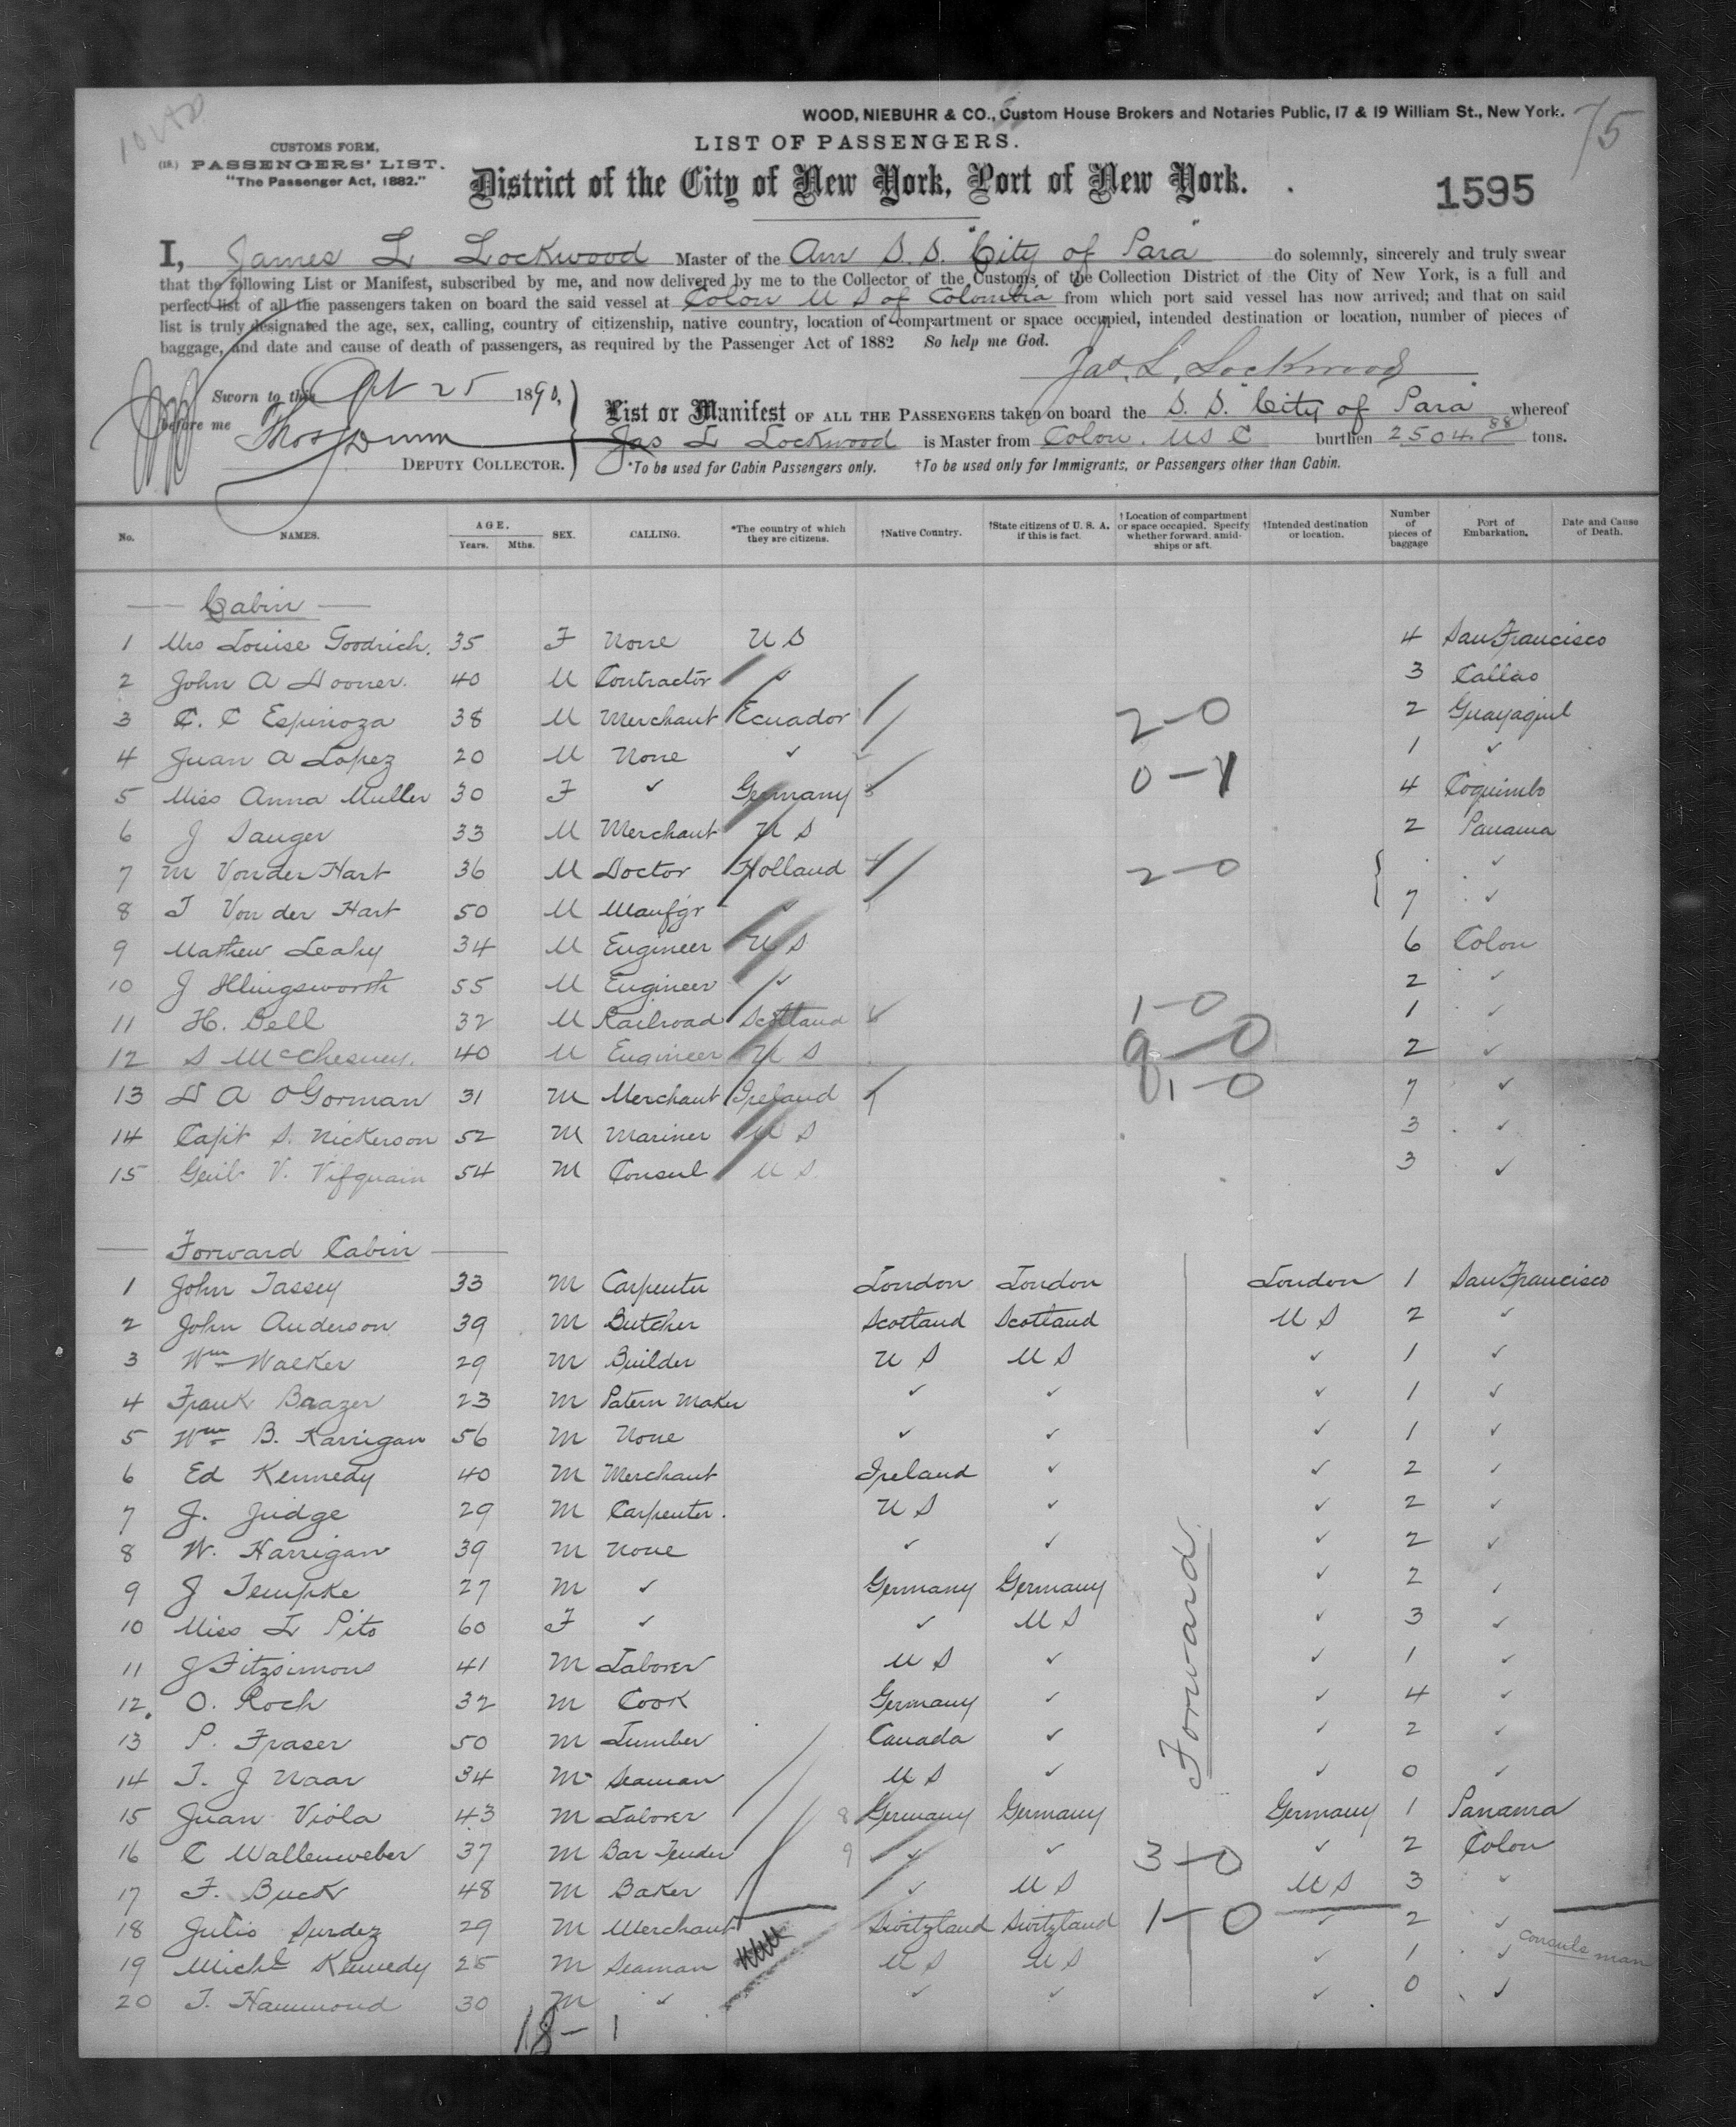 WOOD, NIEBUHR & CO., Custom House Brokers and Notaries Public, 17 & 19 William St., New York.
75
CUSTOMS FORM,
(18.) PASSENGERS' LIST.
"The Passenger Act, 1882."
LIST OF PASSENGERS.
District of the City of New York, Port of New York.
1595
I, James L Lockwood Master of the Am S.S. "City of Para" do solemnly, sincerely and truly swear
that the following List or Manifest, subscribed by me, and now delivered by me to the Collector of the Customs of the Collection District of the City of New York, is a full and
perfect list of all the passengers taken on board the said vessel at Colon U S of Colombia from which port said vessel has now arrived; and that on said
list is truly designated the age, sex, calling, country of citizenship, native country, location of compartment or space occupied, intended destination or location, number of pieces of
baggage, and date and cause of death of passengers, as required by the Passenger Act of 1882 So help me God.
Jas. L. Lockwood
Sworn to this 25 1890,
before me
DEPUTY COLLECTOR.
List or Manifest OF ALL THE PASSENGERS taken on board the S. S. City of Para whereof
Jas L Lockwood is Master from Colon. U S C burthen 2504.88 tons.
*To be used for Cabin Passengers only. †To be used only for Immigrants, or Passengers other than Cabin.
No. NAMES. AGE. Years. Mths. SEX. CALLING. *The country of which they are citizens. †Native Country. †State citizens of U. S. A. if this is fact. †Location of compartment or space occupied. Specify whether forward, amidships or aft. †Intended destination or location. Number of pieces of baggage Port of Embarkation. Date and Cause of Death.
Cabin
1 Mrs Louise Goodrich. 35 F None U S 4 San Francisco
2 John A Dooner. 40 M Contractor ✓ 3 Callao
3 C. C Espinoza 38 M Merchant Ecuador 2-0 2 Guayaquil
4 Juan A Lopez 20 M None ✓ 0-1 1 ✓
5 Miss Anna Muller 30 F ✓ Germany 4 Coquimbo
6 J Sanger 33 M Merchant U S 2 Panama
7 M Von der Hart 36 M Doctor Holland 2-0 ✓
8 J Von der Hart 50 M Manfgr ✓ 7 ✓
9 Mathew Leahy 34 M Engineer U S 6 Colon
10 J Illingsworth 55 M Engineer ✓ 2 ✓
11 H. Bell 32 M Railroad Scotland 1-0 1 ✓
12 S McChesney. 40 M Engineer U S 9-0 2 ✓
13 D A OGorman 31 M Merchant Ireland 1-0 7 ✓
14 Capt S. Nickerson 52 M Mariner U S 3 ✓
15 V. Vifquain 54 M Consul U S 3 ✓
Forward Cabin
1 John Tassey 33 M Carpenter London London London 1 San Francisco
2 John Anderson 39 M Butcher Scotland Scotland U S 2 ✓
3 Wm Walker 29 M Builder U S U S ✓ 1 ✓
4 Frank Brazer 23 M Patern Maker ✓ ✓ ✓ 1 ✓
5 Wm B. Karrigan 56 M None ✓ ✓ ✓ 1 ✓
6 Ed Kennedy 40 M Merchant Ireland ✓ ✓ 2 ✓
7 J. Judge 29 M Carpenter. U S ✓ ✓ 2 ✓
8 W. Harrigan 39 M None ✓ ✓ ✓ 2 ✓
9 J Tempke 27 M ✓ Germany Germany ✓ 2 ✓
10 Miss L Pito 60 F ✓ ✓ U S ✓ 3 ✓
11 J Fitzsimons 41 M Laborer U S ✓ ✓ 1 ✓
12. O. Roch 32 M Cook Germany ✓ ✓ 4 ✓
13 P. Fraser 50 M Lumber Canada ✓ ✓ 2 ✓
14 T. J Naar 34 M Seaman U S ✓ ✓ 0 ✓
Forward
15 Juan Viola 43 M Laborer 8 Germany Germany Germany 1 Panama
16 C Wallenweber 37 M Bar Tender 9 ✓ ✓ 3-0 ✓ 2 Colon
17 F. Buck 48 M Baker ✓ U S U S 3 ✓
18 Julio Surdez 29 M Merchant Switzland Switzland 1-0 ✓ 2 ✓
19 Michl Kennedy 25 M Seaman U S U S ✓ 1 ✓ consuls man
20 T. Hammond 30 M ✓ ✓ ✓ ✓ 0 ✓
18-1